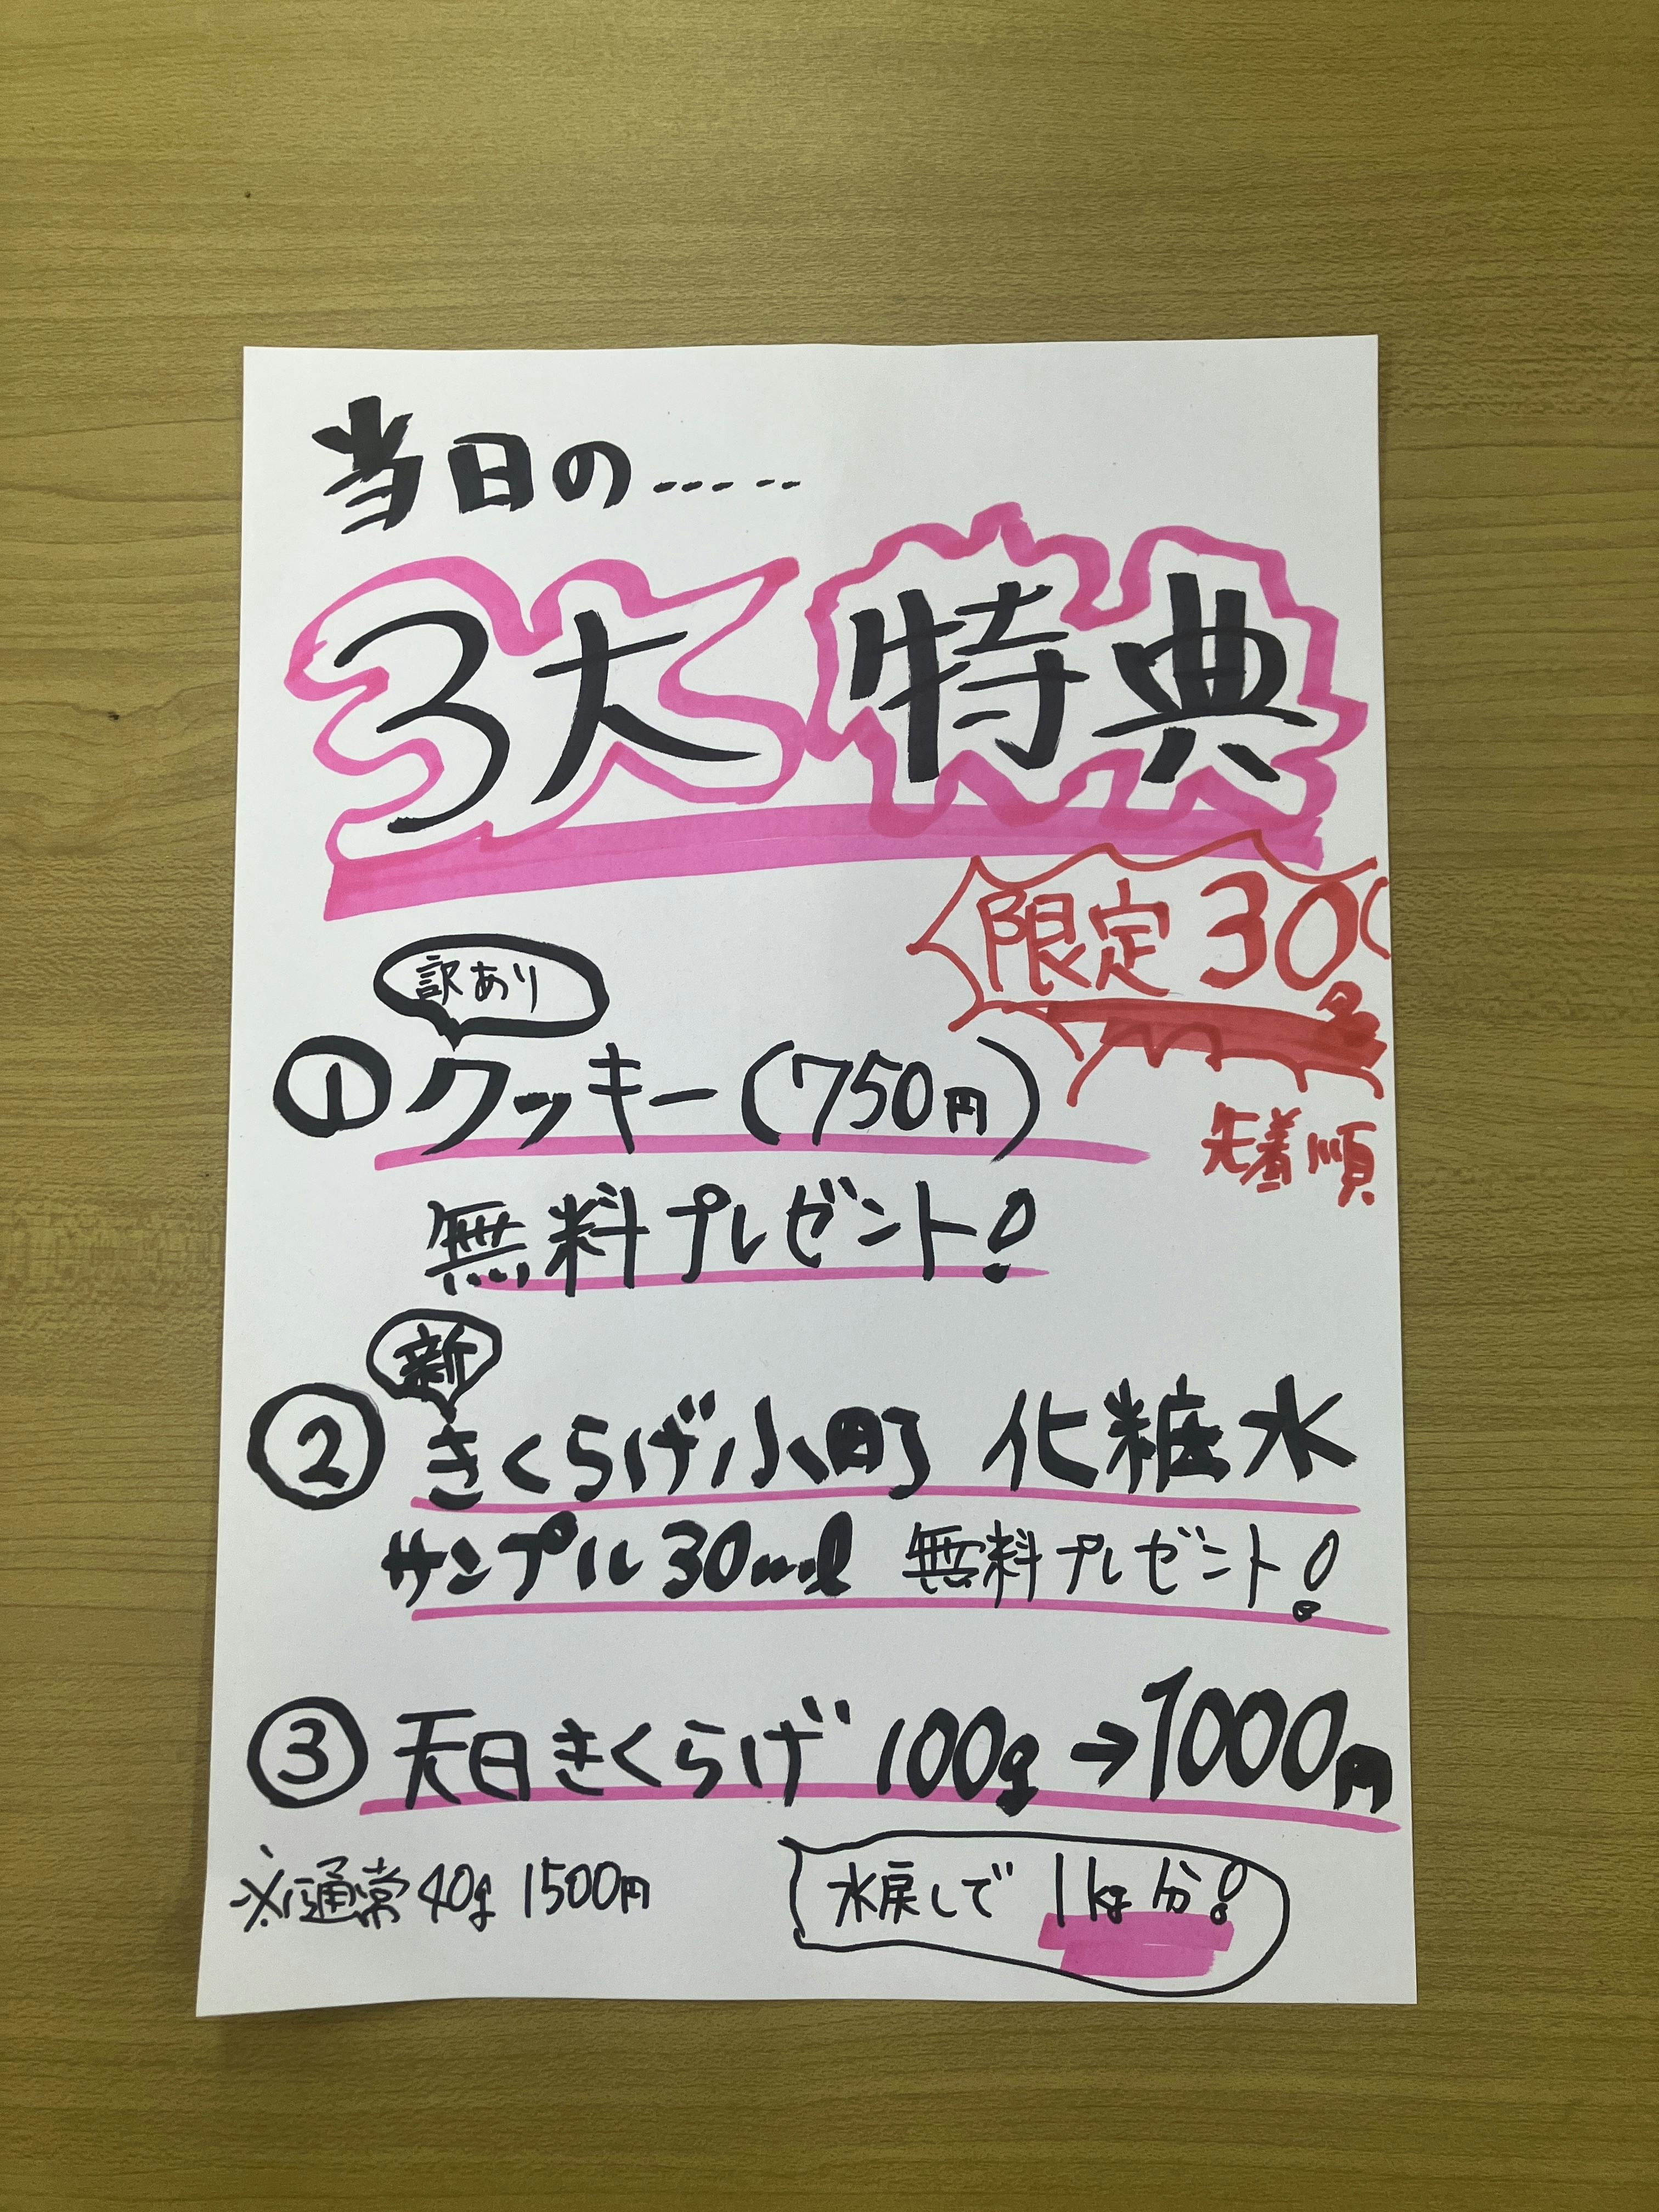 当日の.....
3大特典
限定30名
先着順
訳あり
①クッキー(750円)
無料プレゼント!
新
②きくらげ小町 化粧水
サンプル30ml 無料プレゼント!
③天日きくらげ 100g→1000円
※通常40g 1500円
水戻しで1kg分!